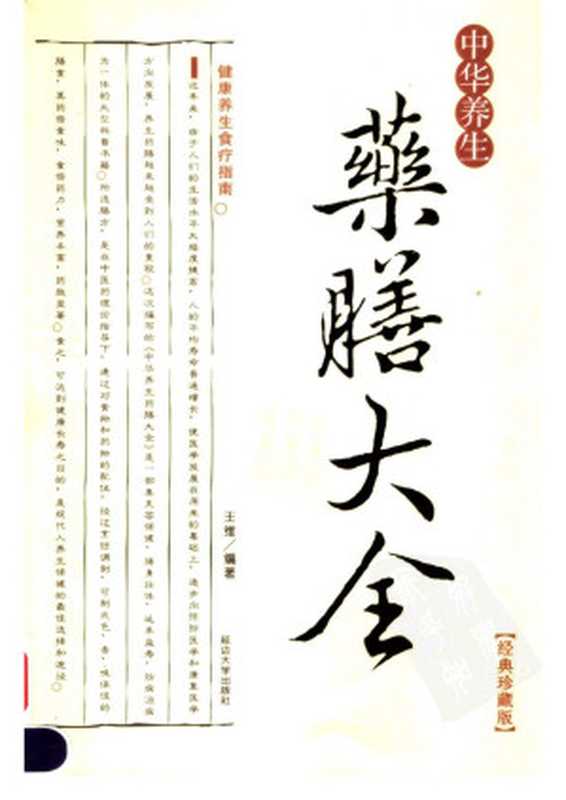 中华养生
藥膳大全
【经典珍藏版】
健康养生食疗指南○
王维／编著
延边大学出版社
近年来，由于人们的生活水平大幅度提高，人的平均寿命普遍增长，使医学发展在原来的基础上，逐步向预防医学和康复医学
方向发展，养生药膳越来越受到人们的重视○这次编写的《中华养生药膳大全》是一部集美容保健，健身壮体，延年益寿，防病治病
为一体的大型科普书籍○所选膳方，是在中医药理论指导下，通过对食物和药物的配伍，经过烹饪调制，可制成色，香，味俱佳的
膳食，其药借食味，食借药力，营养丰富，药效显著○食之，可达到健康长寿之目的，是现代人养生保健的最佳选择和途径○